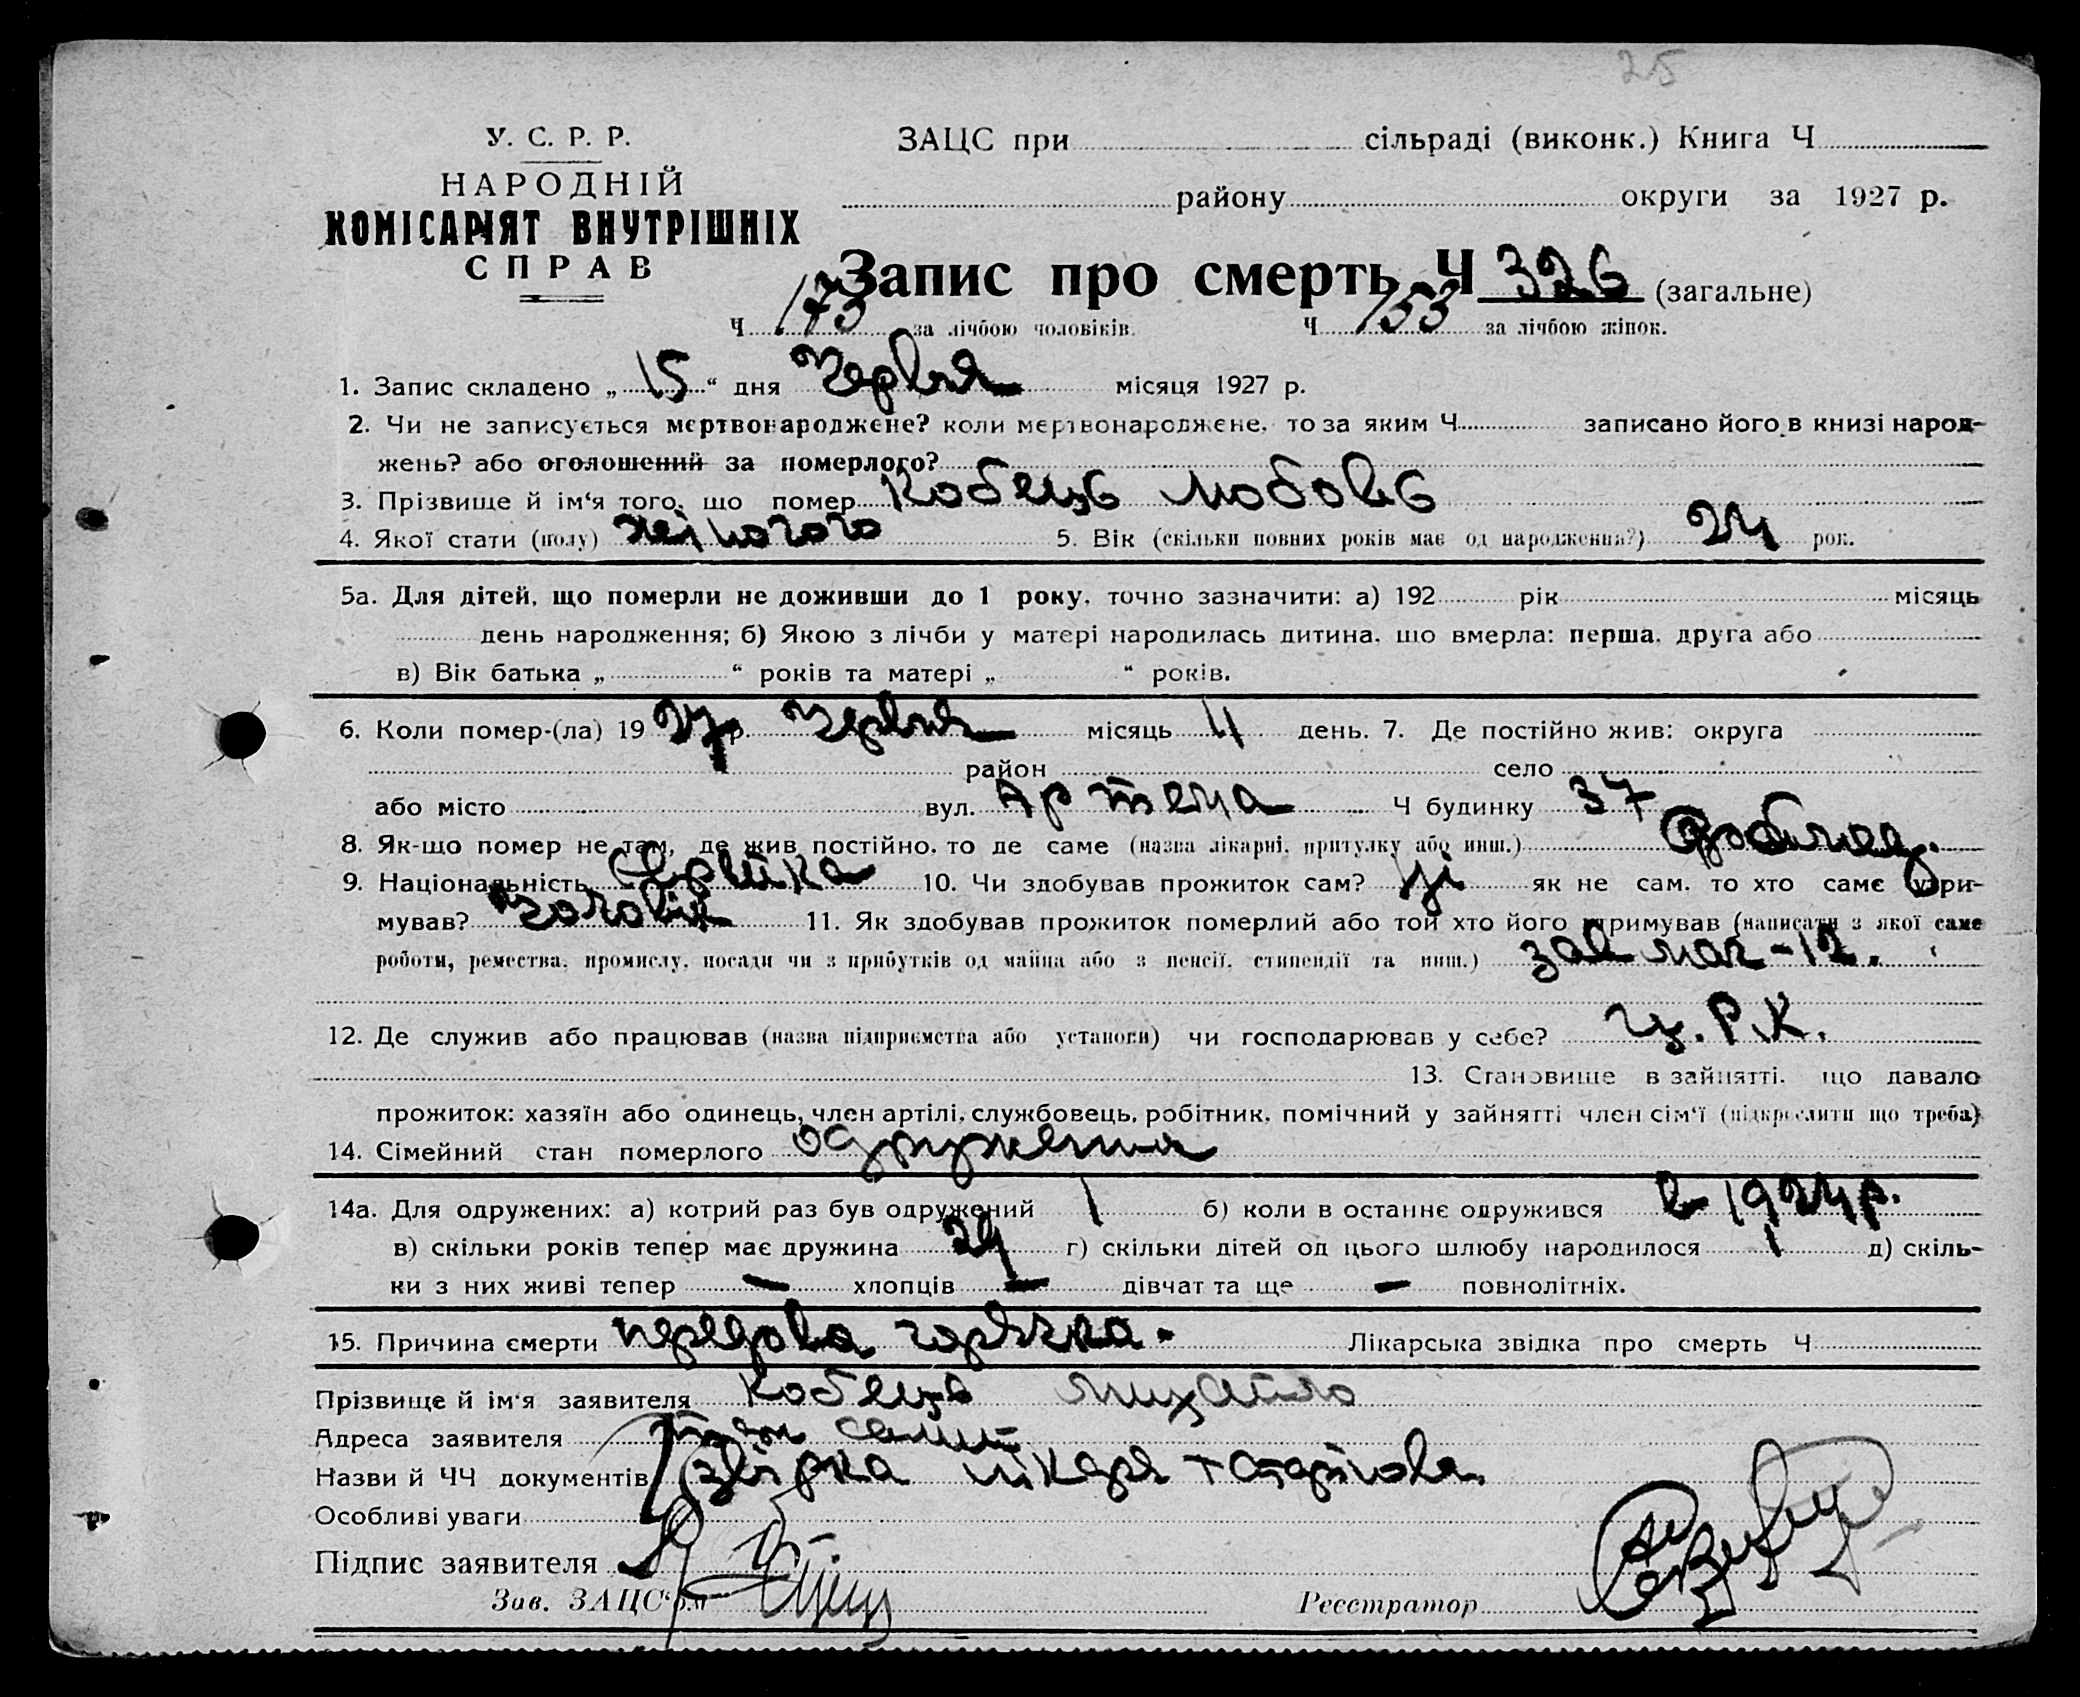 25
У. С. Р. Р.
НАРОДНІЙ
КОМІСАРІЯТ ВНУТРІШНІХ
СПРАВ
ЗАЦС при сільраді (виконк.) Книга Ч
району округи за 1927 р.
Запис про смерть Ч 326 (загальне)
Ч 173 за лічбою чоловіків. Ч 153 за лічбою жінок.
1. Запис складено „ 15 “ дня Червня місяця 1927 р.
2. Чи не записується мертвонароджене? коли мертвонароджене, то за яким Ч записано його в книзі народ-
жень? або оголошений за померлого?
3. Прізвище й ім‘я того, що помер Кобець Любовь
4. Якої стати (полу) жіночого 5. Вік (скільки повних років має од народження?) 24 рок.
5а. Для дітей, що померли не доживши до 1 року, точно зазначити: а) 192 рік місяць
день народження; б) Якою з лічби у матері народилась дитина, що вмерла: перша, друга або
в) Вік батька „ “ років та матері „ “ років.
6. Коли помер-(ла) 19 27 р. Червня місяць 4 день. 7. Де постійно жив: округа
район село
або місто вул. Артема Ч будинку 37
8. Як-що помер не там, де жив постійно, то де саме (назва лікарні, притулку або инш.)
9. Національність Єврейка 10. Чи здобував прожиток сам? ні як не сам, то хто саме утри-
мував? чоловік 11. Як здобував прожиток померлий або той хто його утримував (написати з якої саме
роботи, ремества, промислу, посади чи з прибутків од майна або з пенсії, стипендії та инш.) зав маг - 12.
12. Де служив або працював (назва підприємства або установи) чи господарював у себе? Ц.Р.К.
13. Становище в зайнятті, що давало
прожиток: хазяїн або одинець, член артілі, службовець, робітник, помічний у зайнятті член сім‘ї (підкреслити що треба)
14. Сімейний стан померлого одружена
14а. Для одружених: а) котрий раз був одружений 1 б) коли в останнє одружився в 1924 р.
в) скільки років тепер має дружина 29 г) скільки дітей од цього шлюбу народилося 1 д) скіль-
ки з них живі тепер — хлопців — дівчат та ще — повнолітніх.
15. Причина смерти горячка. Лікарська звідка про смерть Ч
Прізвище й ім‘я заявителя Кобець Михайло
Адреса заявителя
Назви й ЧЧ документів лікаря
Особливі уваги
Підпис заявителя
Зав. ЗАЦС‘ом Реєстратор